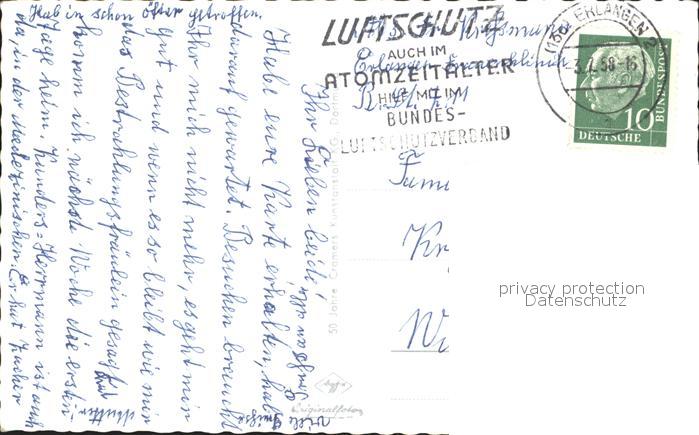 Hab in schon öfter getroffen.
LUFTSCHUTZ
AUCH IM
ATOMZEITALTER
HILF MIT IM
BUNDES-
LUFTSCHUTZVERBAND
(13a) ERLANGEN 2
3. 58-16
10
DEUTSCHE
BUNDESPOST
Erlangen
Ihr Lieben beide!
Habe eure Karte erhalten, hab
darauf gewartet. Besuchen braucht
Ihr mich nicht mehr, es geht mir
gut und wenn es so bleibt wie mir
das Bestrahlungsfräulein gesagt hat
komm ich nächste Woche die ersten
Tage heim. Kunders-Herrmann ist auch
da, in der Medezinischen Er hat Zucker
Viele Grüsse
Mutter
50 Jahre Cramers Kunstanstalt KG, Dortm
Originalfoto
privacy protection
Datenschutz